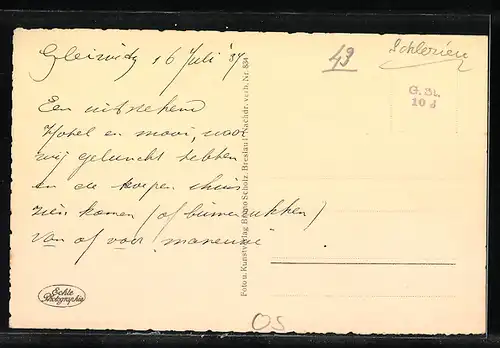 Gleiwitz 16 Juli '37
Een uitstekend
Hotel en mooi, waar
wij geluncht hebben
en de troepen thuis
zien komen (of binnenrukken)
Van of voor
43
Schlesien
G. St.
10 d
Foto u. Kunstverlag Bruno Scholz, Breslau 1 Nachdr. verb. Nr. 834
Echte
Photographie
OS